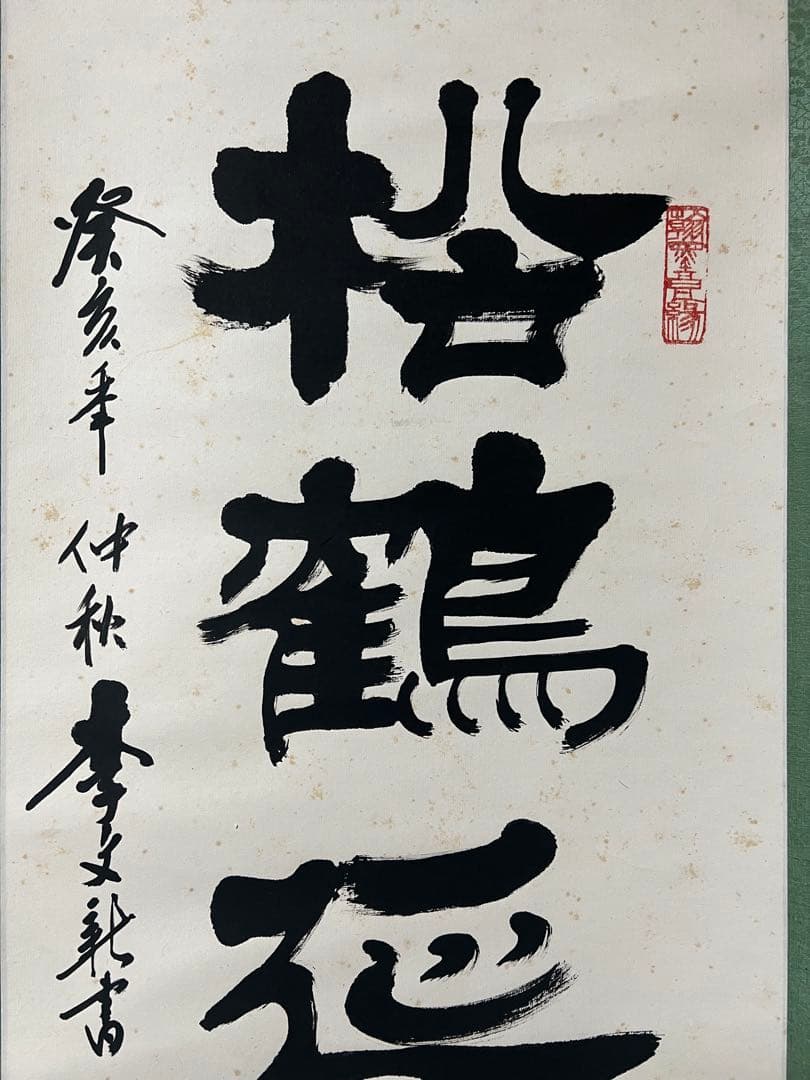 翰墨緣
松鶴延
癸亥年 仲秋 李文新書